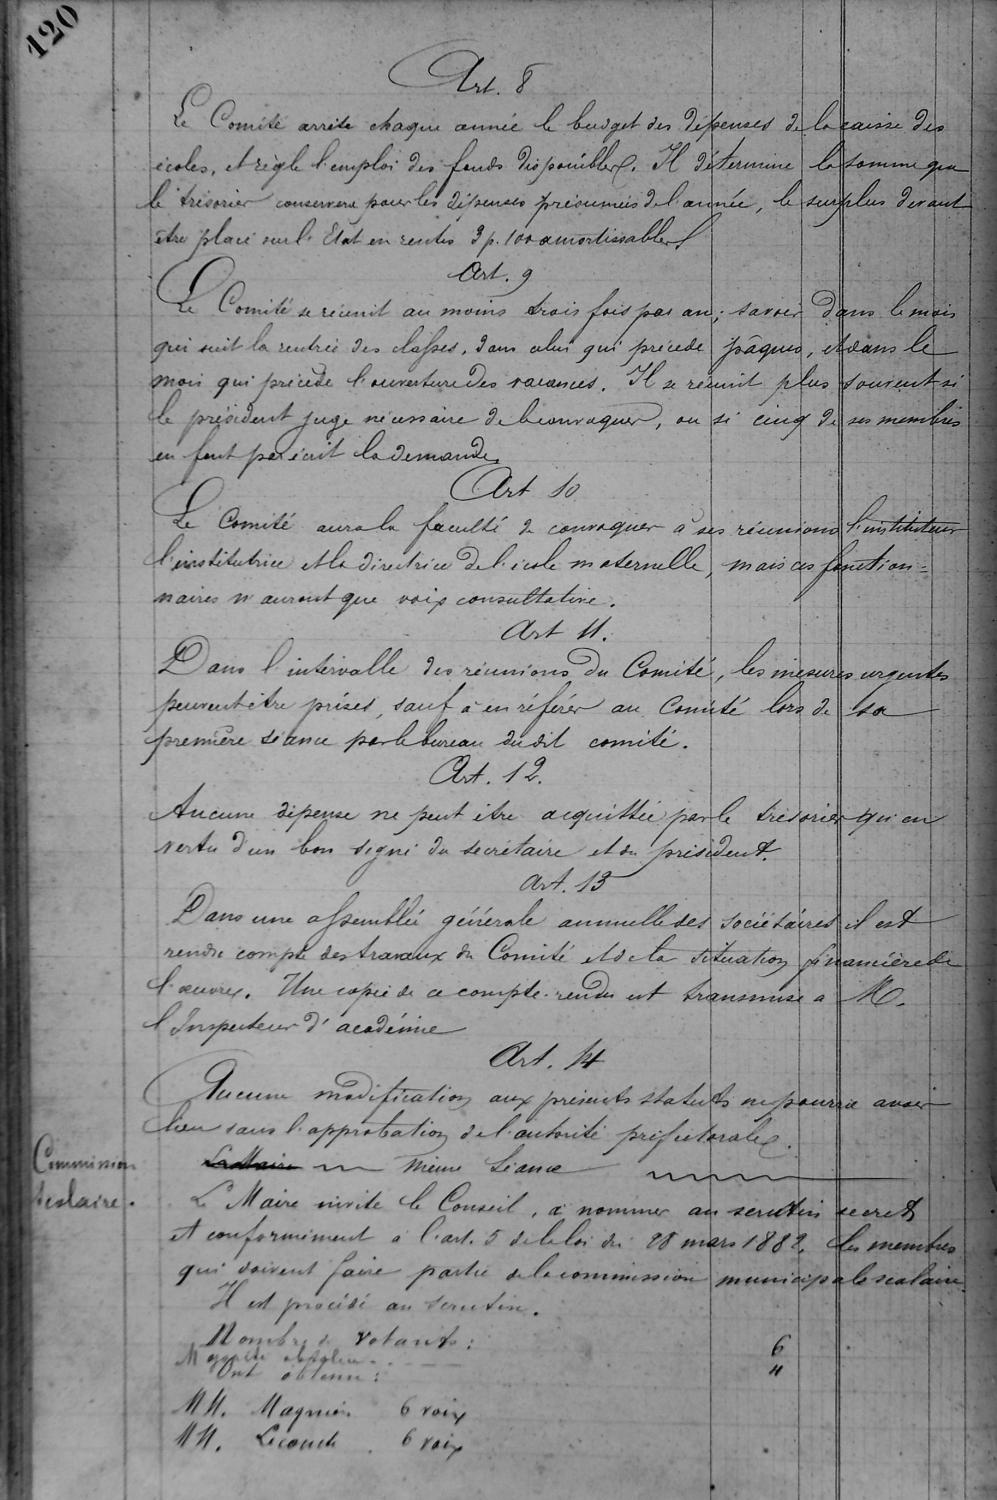 120
Art. 8
Le Comité arrête chaque année le budget des dépenses de la caisse des
écoles, et règle l'emploi des fonds disponibles. Il détermine la somme que
le trésorier conservera pour les dépenses présumées de l'année, le surplus devant
être placé sur l'Etat en rentes 3 p. 100 amortissables
Art. 9
Le Comité se réunit au moins trois fois par an ; savoir dans le mois
qui suit la rentrée des classes, dans celui qui précède pâques, et dans le
mois qui précède l'ouverture des vacances. Il se réunit plus souvent si
le président juge nécessaire de le convoquer, ou si cinq de ses membres
en font par écrit la demande.
Art 10
Le Comité aura la faculté de convoquer à ses réunions l'instituteur
l'institutrice et la directrice de l'école maternelle, mais ces fonction=
naires n'auront que voix consultative.
Art 11.
Dans l'intervalle des réunions du Comité, les mesures urgentes
peuvent être prises, sauf à en référer au Comité lors de sa
première séance par le bureau du dit comité.
Art. 12.
Aucune dépense ne peut être acquittée par le trésorier qu'en
vertu d'un bon signé du secrétaire et du président.
Art. 13
Dans une assemblée générale annuelle des sociétaires il est
rendu compte des travaux du Comité et de la situation financière de
l'œuvre. Une copie de ce compte-rendu est transmise a M.
l'Inspecteur d'académie
Art. 14
Aucune modification aux présents statuts ne pourra avoir
lieu sans l'approbation de l'autorité préfectorale.
Commission
scolaire.
Le Maire même séance
Le Maire invite le Conseil, à nommer au scrutin secret
et conformément à l'art. 5 de la loi du 28 mars 1882, les membres
qui doivent faire partie de la commission municipale scolaire
Il est procédé au scrutin.
Nombre de votants : 6
Majorité absolue. "
Ont obtenu :
MM. Magnier 6 voix
MM. 6 voix